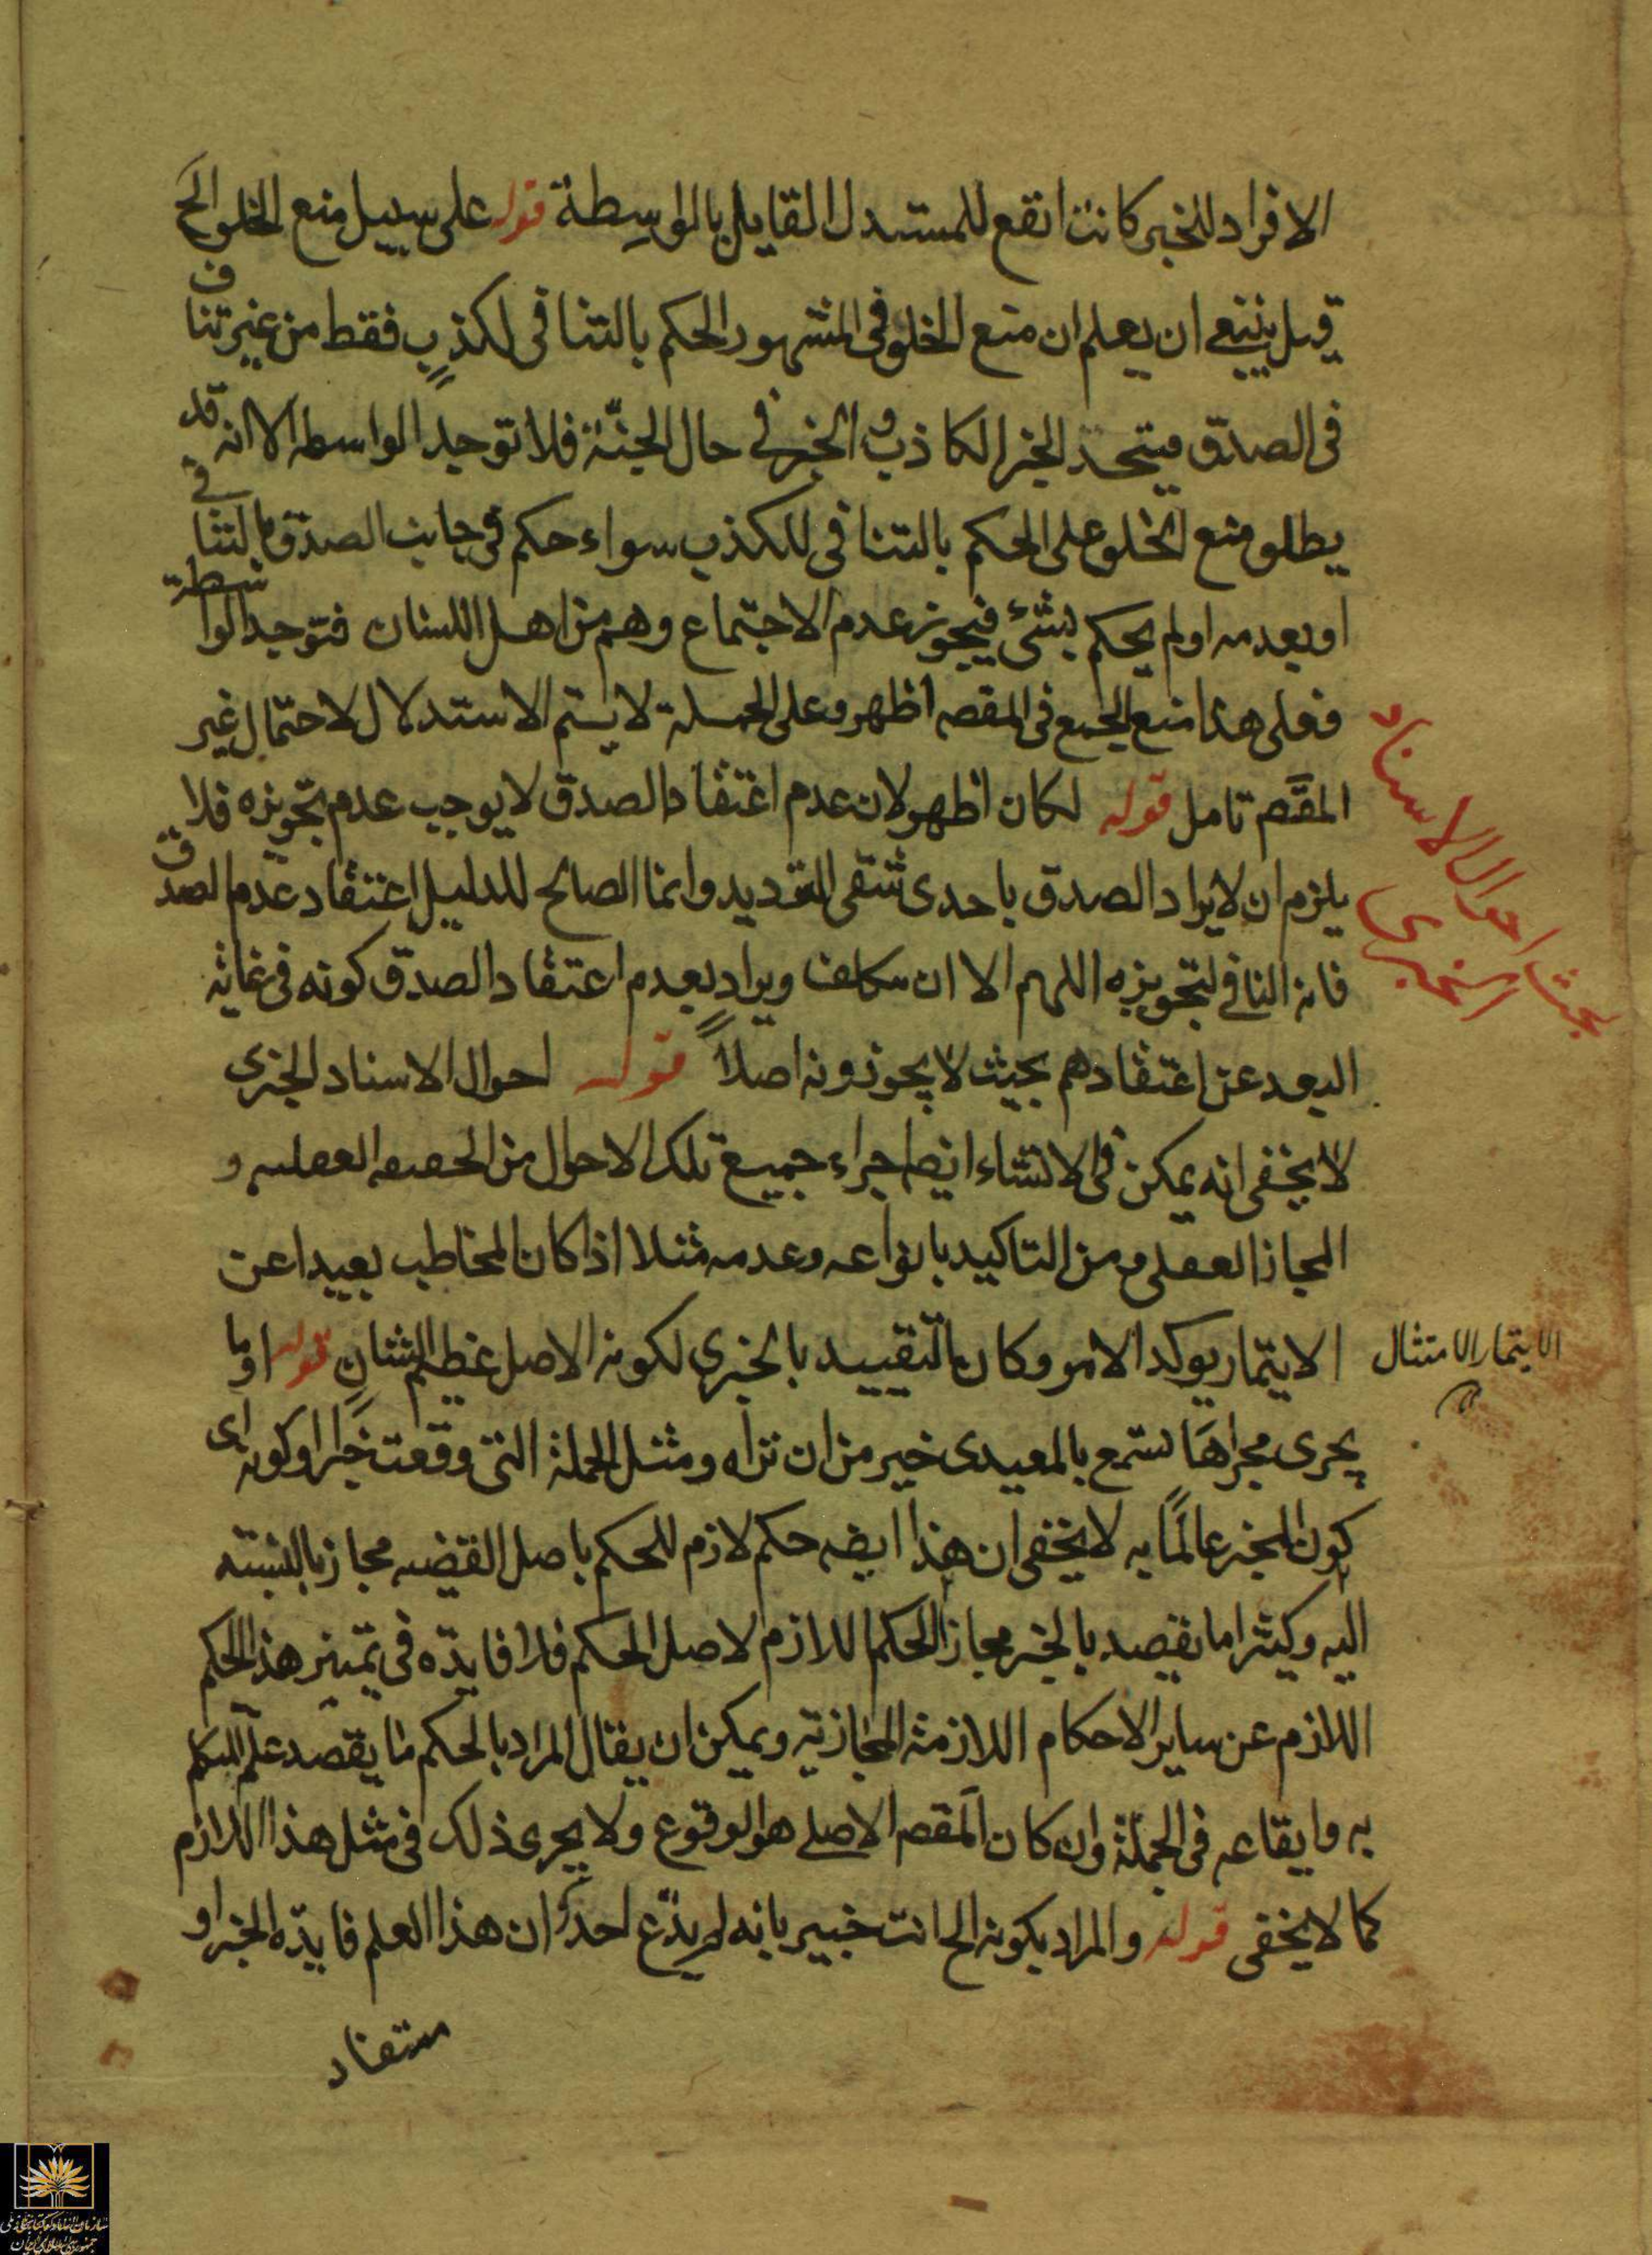 الافراد للخبر كانت انفع للمستدل القايل بالواسطة قوله على سبيل منع الخلو الخ
قيل ينبغى ان يعلم ان منع الخلو فى المشهور الحكم بالتنافى لكذب فقط من غير تناف
فى الصدق فيتحد الخبر الكاذب والخبر فى حال الجنّة فلا توجد الواسطه الا انه قد
يطلق منع الخلو على الحكم بالتنافى للكذب سواء حكم فى جانب الصدق بالتنافى
او بعدمه او لم يحكم بشئ فيجوز عدم الاجتماع وهم من اهل اللسان فتوجد الواسطة
فعلى هذا منع الجمع فى المقصه اظهر وعلى الجملة لا يستم الاستدلال لاحتمال غير
المقصم تامل قوله لكان اظهر لان عدم اعتقاد الصدق لا يوجب عدم تجويزه فلا
يلزم ان لا يراد الصدق باحدى شقى الترديد وانما الصالح للدليل اعتقاد عدم الصدق
فانه النافى لتجويزه اللهم الا ان يتكلف ويراد بعدم اعتقاد الصدق كونه فى غاية
البعد عن اعتقادهم بحيث لا يجوزونه اصلاً قوله احوال الاسناد الخبرى
لا يخفى انه يمكن فى الانشاء ايضا اجراء جميع تلك الاحوال من الحقيقه العقليه و
المجاز العقلى ومن التاكيد بانواعه وعدمه مثلا اذا كان المخاطب بعيدا عن
الايتمار يوكد الامر وكان التقييد بالخبرى لكونه الاصل عظيم الشان قوله او ما
يجرى مجراها تسمع بالمعيدى خير من ان تراه ومثل الجملة التى وقعت خبرا او كونه اى
كون المخبر عالمًا به لا يخفى ان هذا ايضه حكم لازم للحكم باصل القضيه مجاز بالنسبته
اليه وكيثرا ما يقصد بالخبر مجاز الحكم اللازم لاصل الحكم فلا فايدّه فى تميز هذا الحكم
اللازم عن ساير الاحكام اللازمة المجازيّه ويمكن ان يقال المراد بالحكم ما يقصد علم المتكلم
به وايقاعه فى الجملة وان كان المقصه الاصلى هو الوقوع ولا يجرى ذلك فى مثل هذا اللازم
كما لا يخفى قوله والمراد بكونه الخ انت خبير بانه لم يدّع احد ان هذا العلم فايدّه الخبر او
مستفاد
بحث احوال الاسناد
الخبرى
الايتمار الامتثال